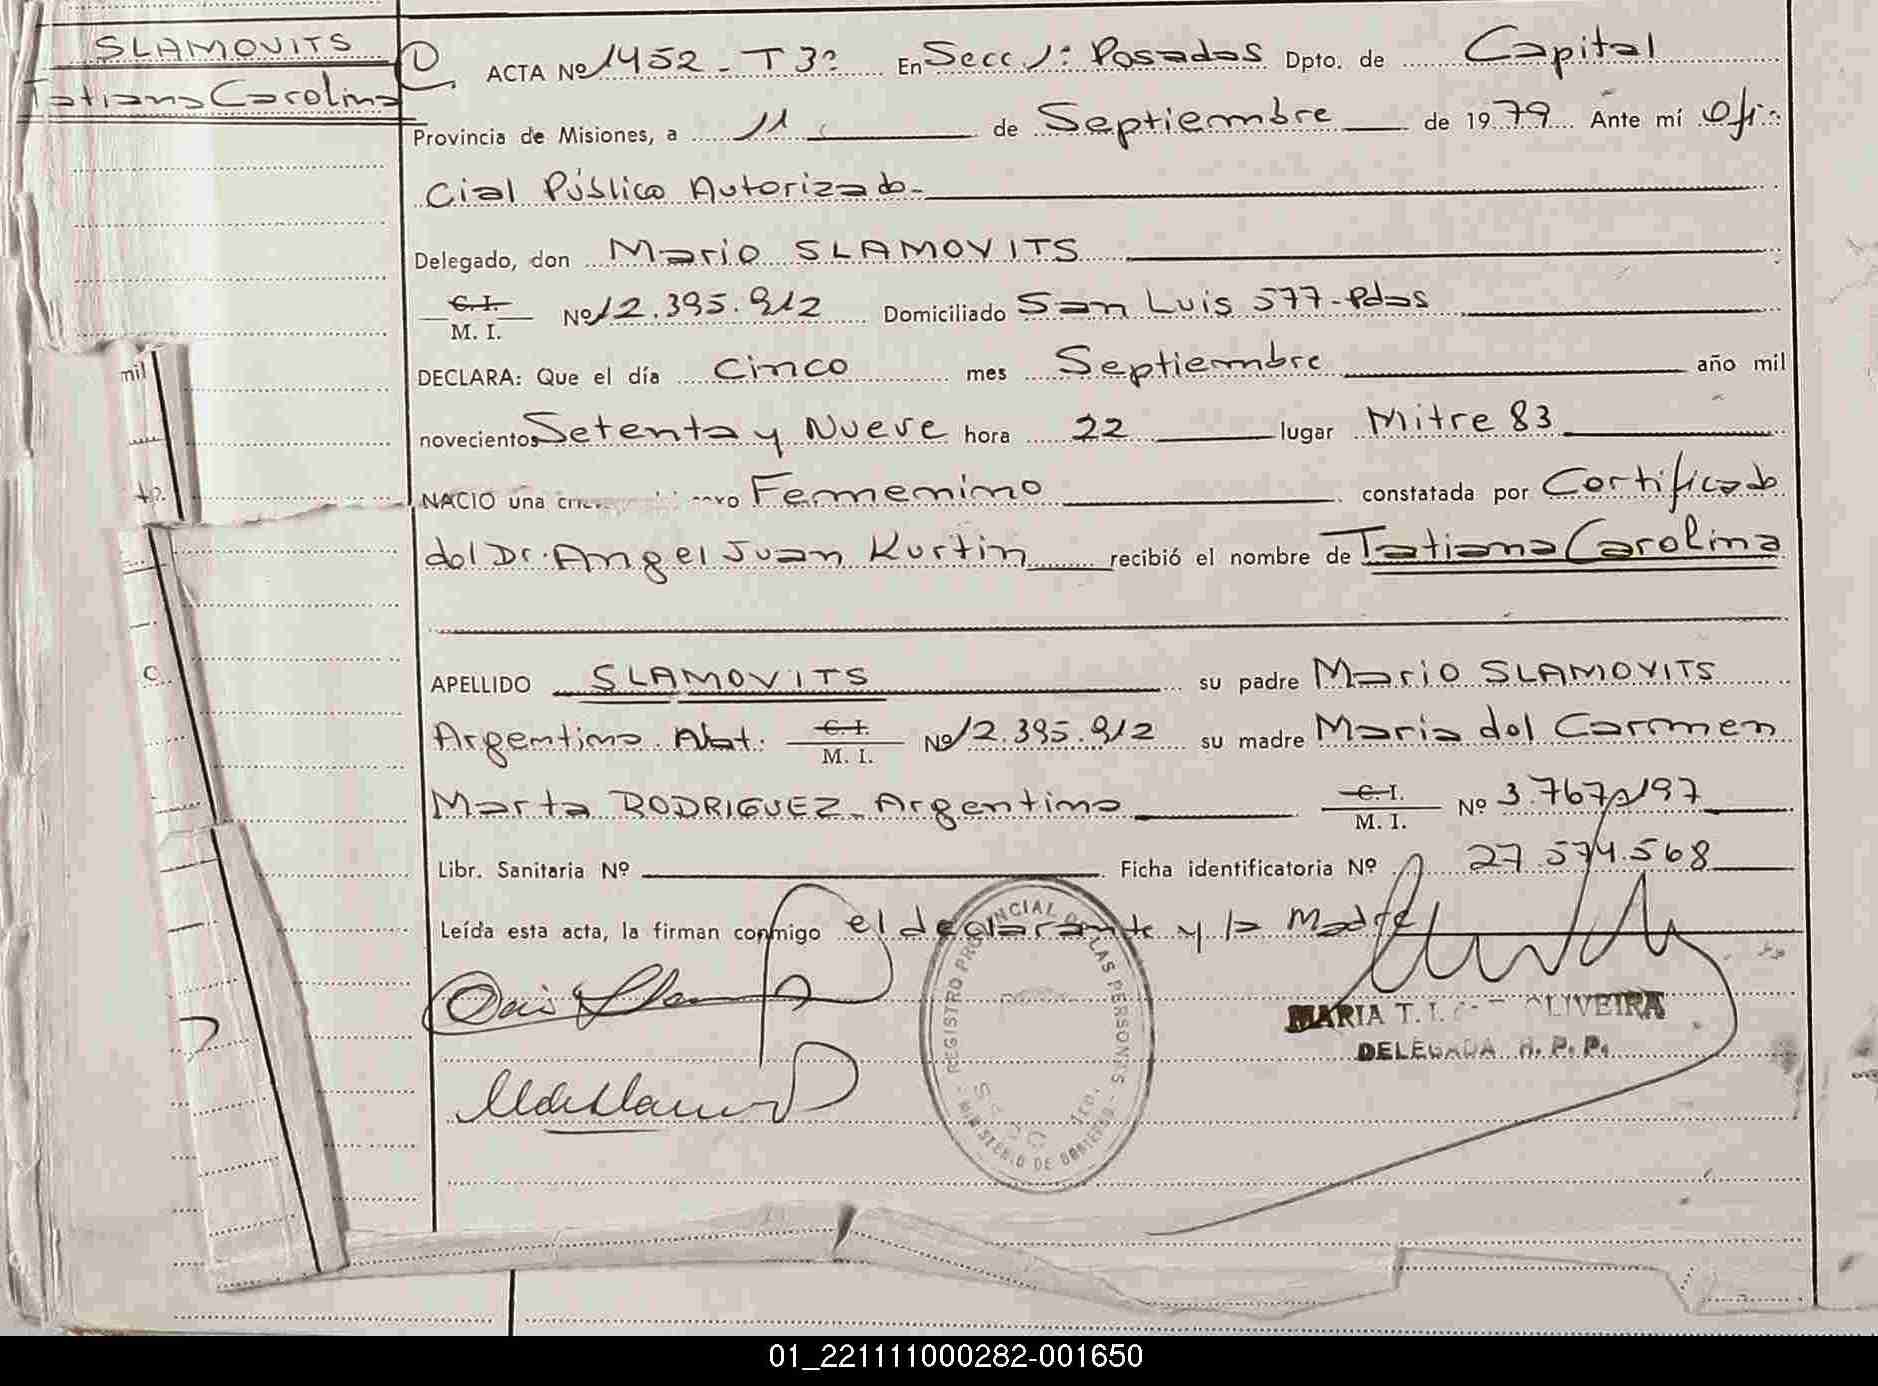 SLAMOVITS
Tatiana Carolina
ACTA Nº 1452 - T 3º En Secc 1ª Posadas Dpto. de Capital
Provincia de Misiones, a 11 de Septiembre de 1979 Ante mí Ofi-
cial Público Autorizado-
Delegado, don Mario SLAMOVITS
C. I.
M. I. Nº 12.395.912 Domiciliado San Luis 577-Pdas
DECLARA: Que el día Cinco mes Septiembre año mil
novecientos Setenta y Nueve hora 22 lugar Mitre 83
NACIO una Femenino constatada por Certificado
del Dr. Angel Juan Kurtin recibió el nombre de Tatiana Carolina
APELLIDO SLAMOVITS su padre Mario SLAMOVITS
Argentino Nat. C. I. M. I. Nº 12.395.912 su madre Maria del Carmen
Marta RODRIGUEZ - Argentina C. I. M. I. Nº 3.767.197
Libr. Sanitaria Nº Ficha identificatoria Nº 27.574.568
Leída esta acta, la firman conmigo el declarante y la Madre
REGISTRO PROVINCIAL DE LAS PERSONAS
MINISTERIO DE GOBIERNO
SECC. 1ra.
MARIA T. OLIVEIRA
DELEGADA R. P. P.
mil
01_221111000282-001650